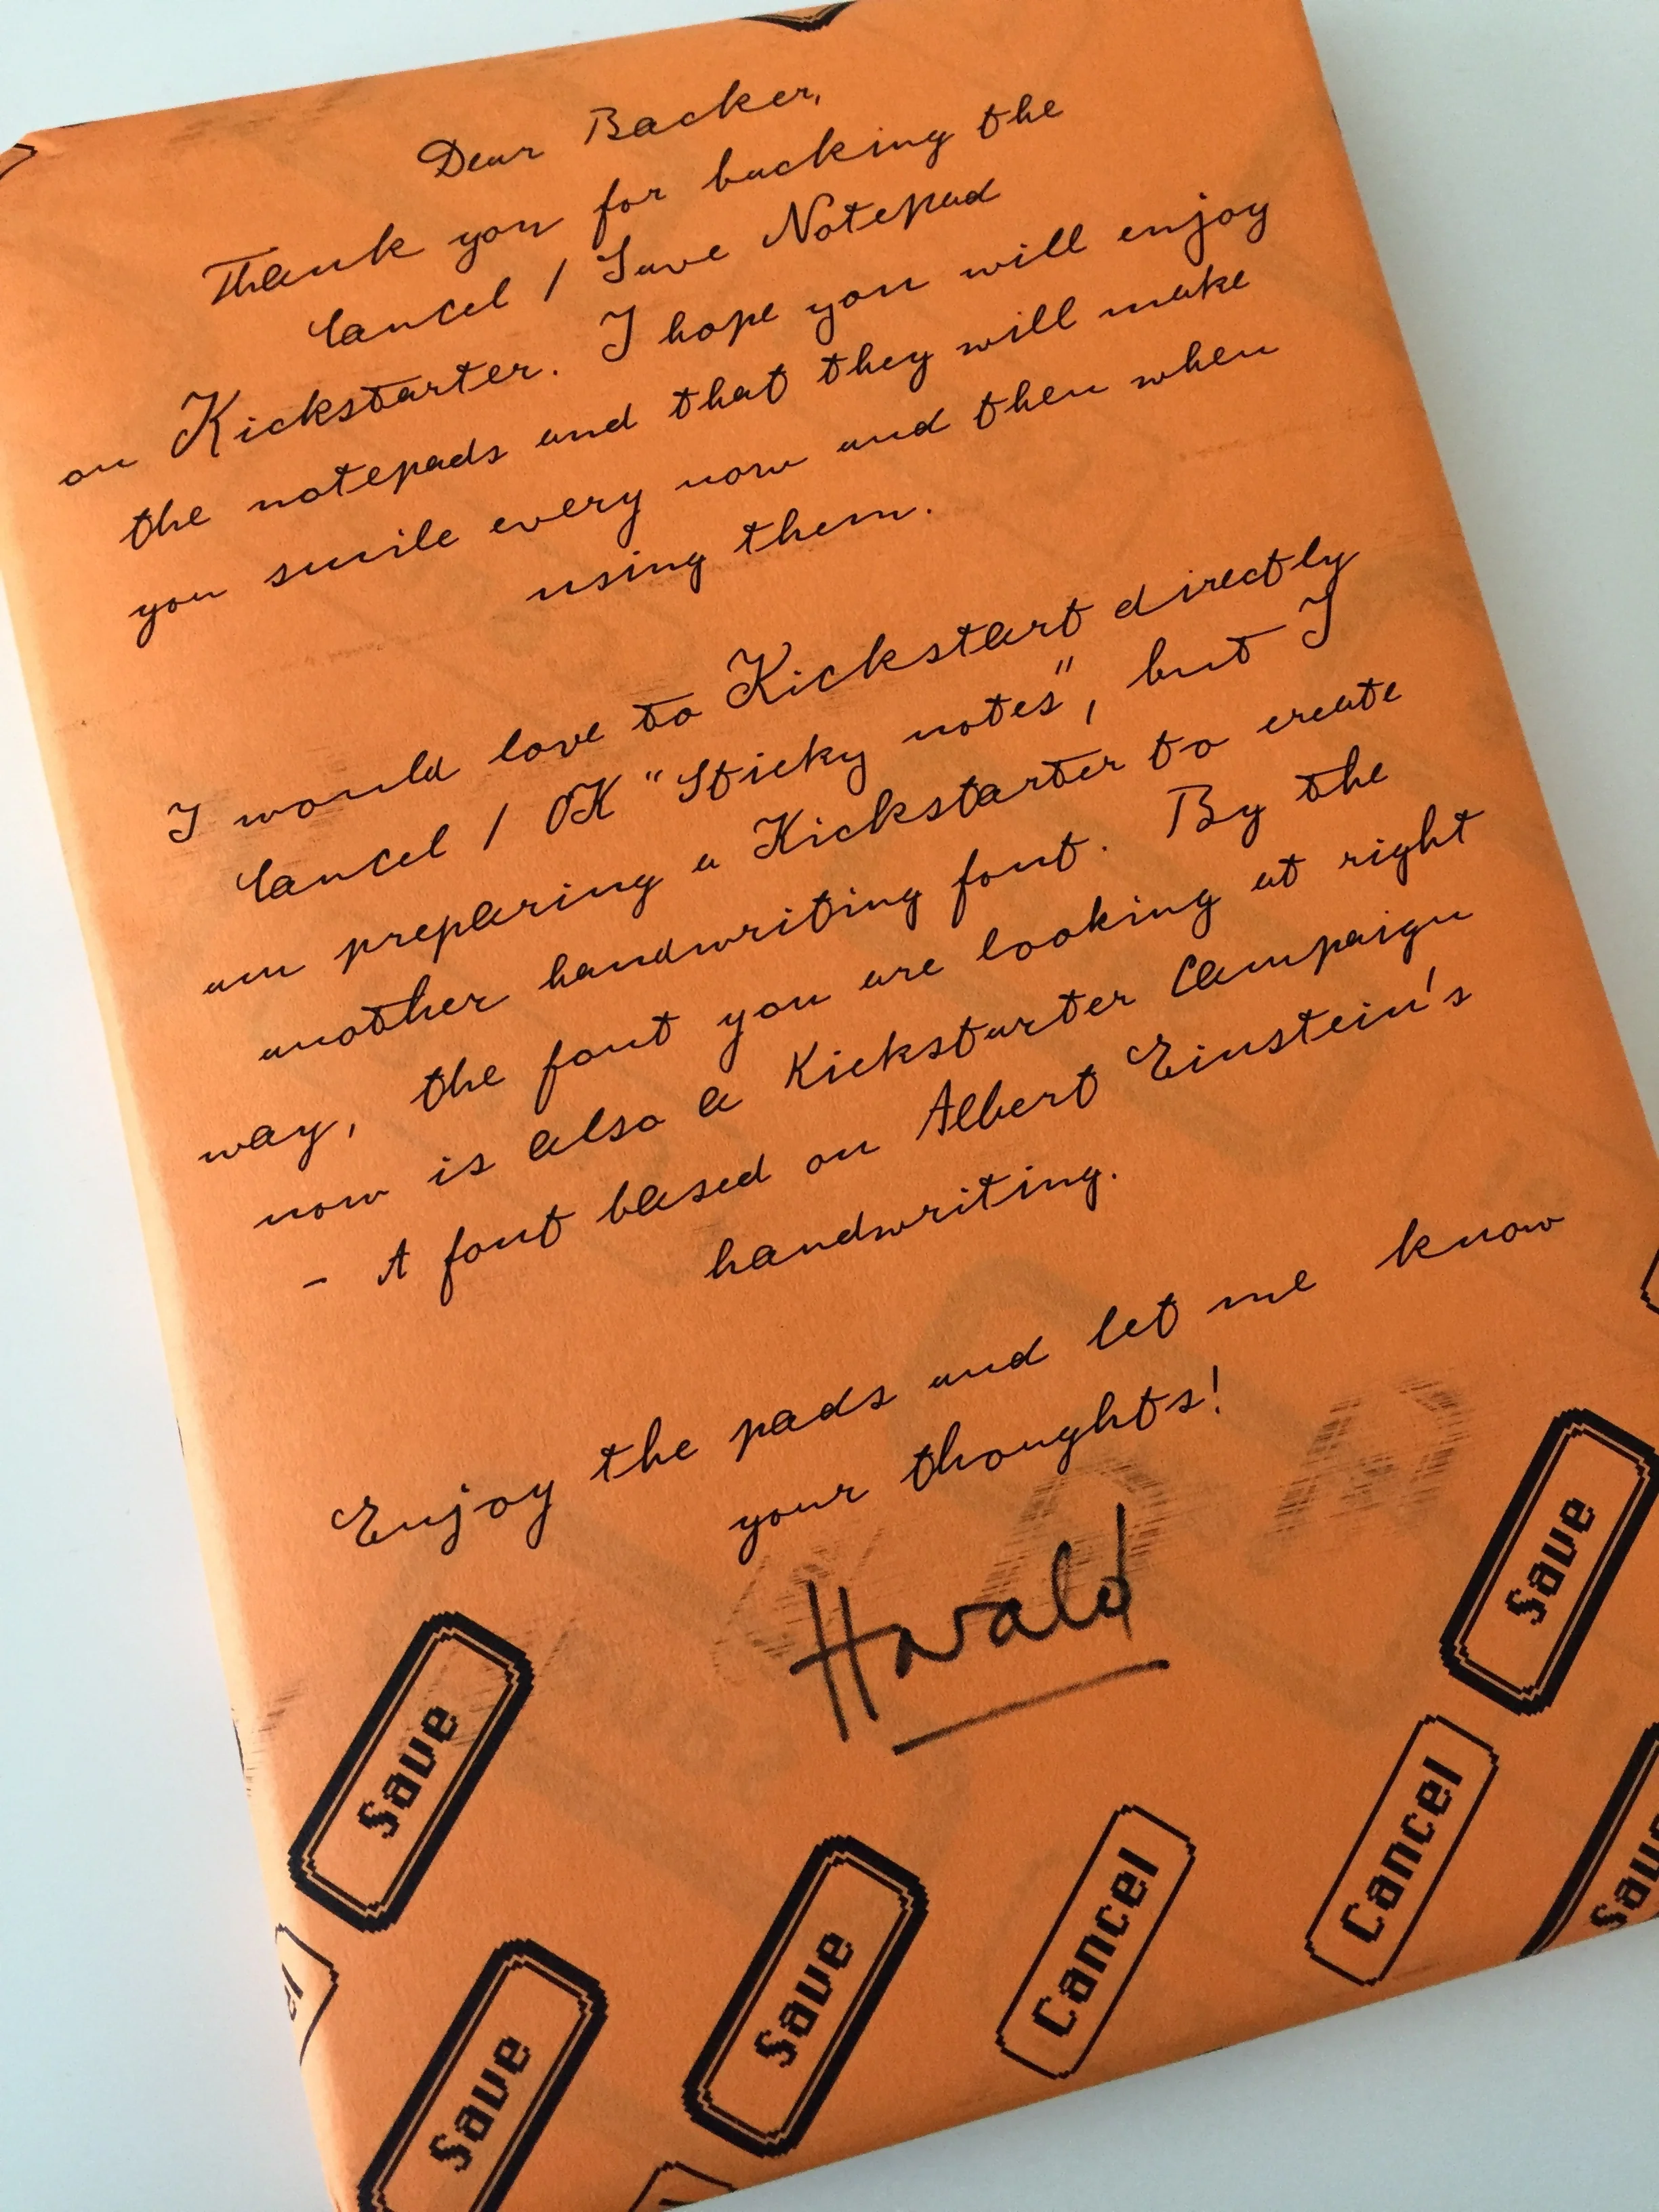 Dear Backer,
Thank you for backing the
Cancel / Save Notepad
on Kickstarter. I hope you will enjoy
the notepads and that they will make
you smile every now and then when
using them.
I would love to Kickstart directly
Cancel / OK "Sticky notes", but I
am preparing a Kickstarter to create
another handwriting font. By the
way, the font you are looking at right
now is also a Kickstarter Campaign
- A font based on Albert Einstein's
handwriting.
Enjoy the pads and let me know
your thoughts!
Harald
Save
Save
Save
Save
Cancel
Cancel
Save